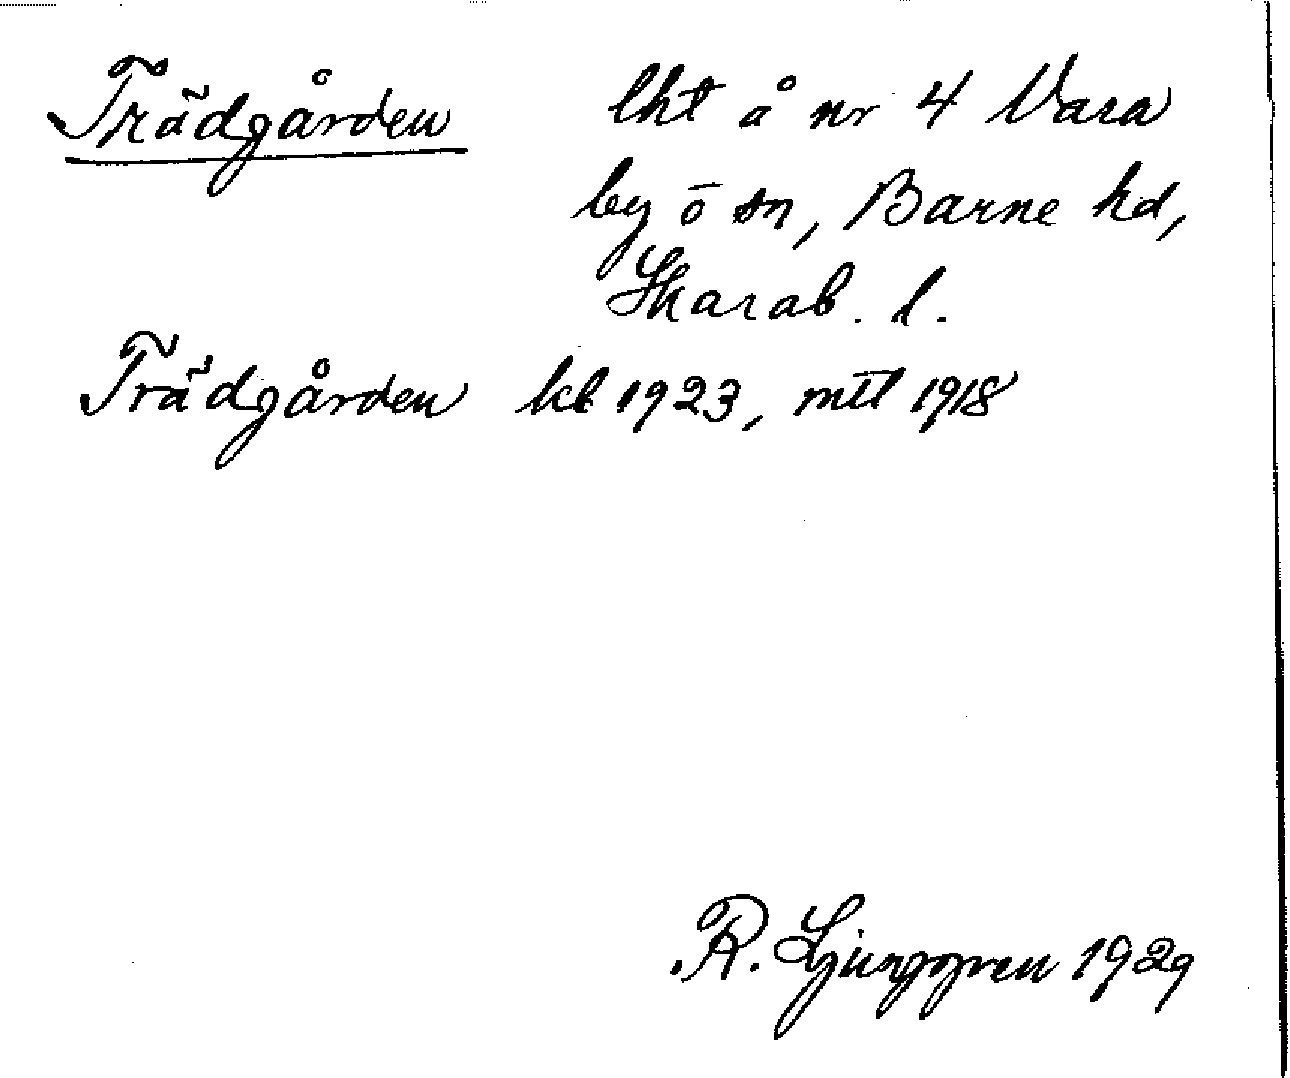 Trädgården lht å nr 4 Vara
by o sn, Barne hd,
Skarab. l.
Trädgården kb 1923, mtl 1918
R. Ljunggren 1929